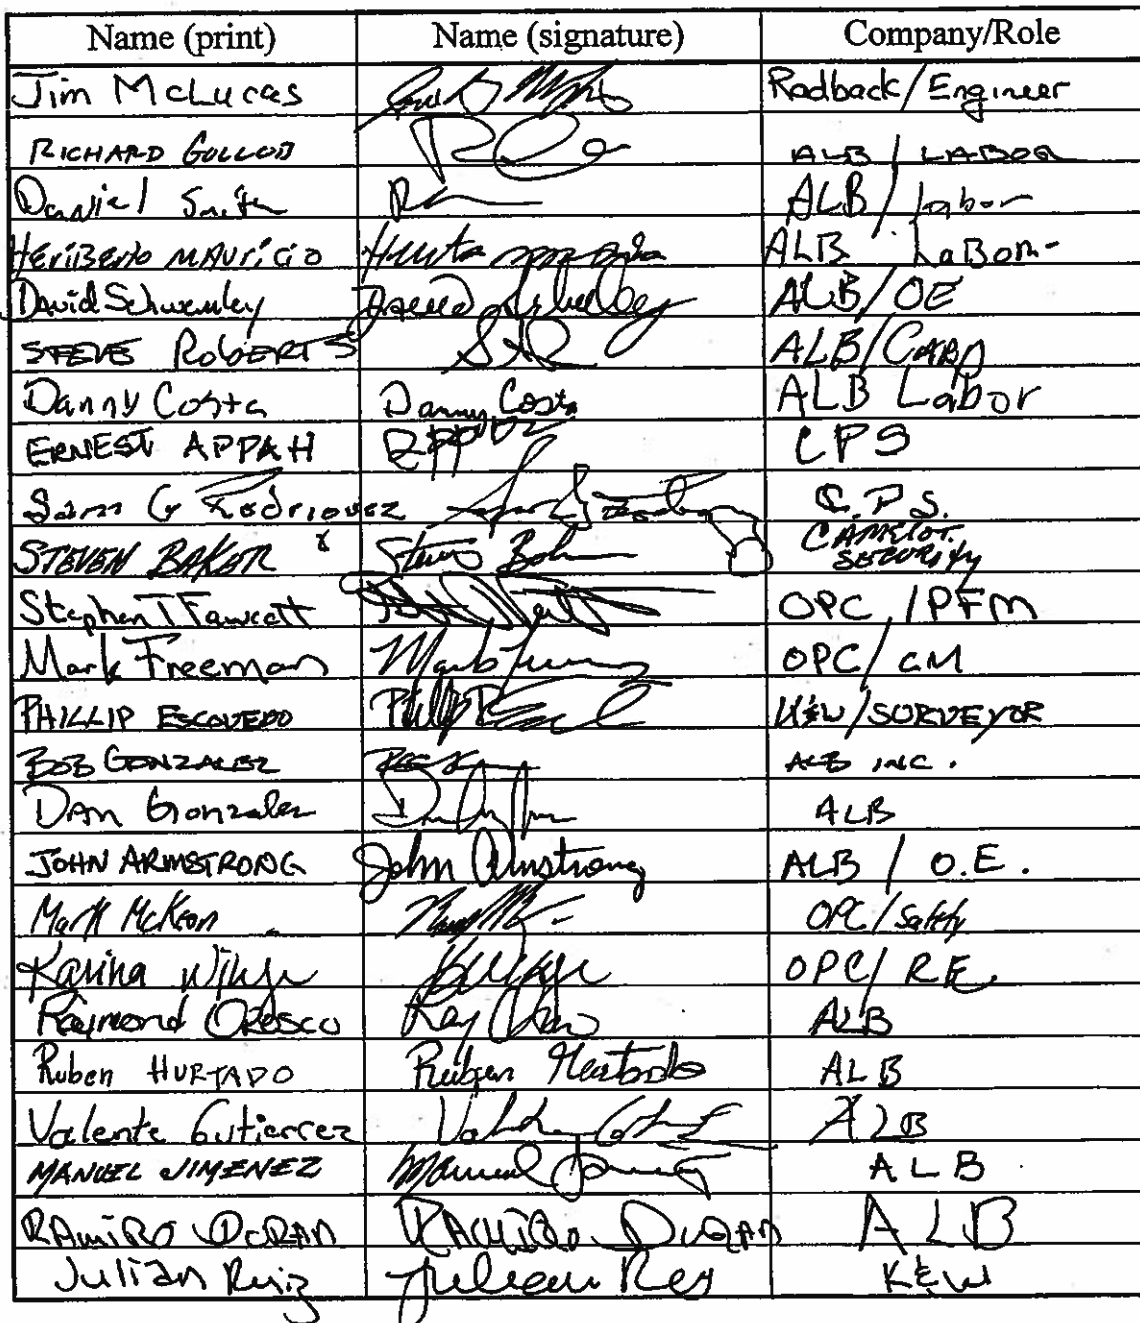 Name (print) Name (signature) Company/Role
Jim McLucas Radback/Engineer
RICHARD GOLLOD ALB / LABOR
Daniel Smith ALB / labor
HeriBerto MAUricio ALB LaBor
David Schwemley ALB/OE
STEVE RobERTS ALB/CARP
Danny Costa Danny Costa ALB Labor
ERNEST APPAH CPS
Sam G Rodriquez C.P.S.
STEVEN BAKER CAMELOT
SECURITY
Stephen T Fawcett OPC / PFM
Mark Freeman OPC/ CM
PHILLIP ESCOVEDO K&W/SURVEYOR
BOB GONZALEZ ALB INC.
DAn Gonzalez ALB
JOHN ARMSTRONG John Armstrong ALB / O.E.
Mark McKeon OPC/Safety
Karina OPC/ R.E.
Raymond ORosco ALB
Ruben HURTADO Ruben Hurtado ALB
Valente Gutierrez ALB
MANUEL JIMENEZ Manuel ALB
RAmiRO DURAN RAmiRo DuRAn ALB
Julian Ruiz K&W